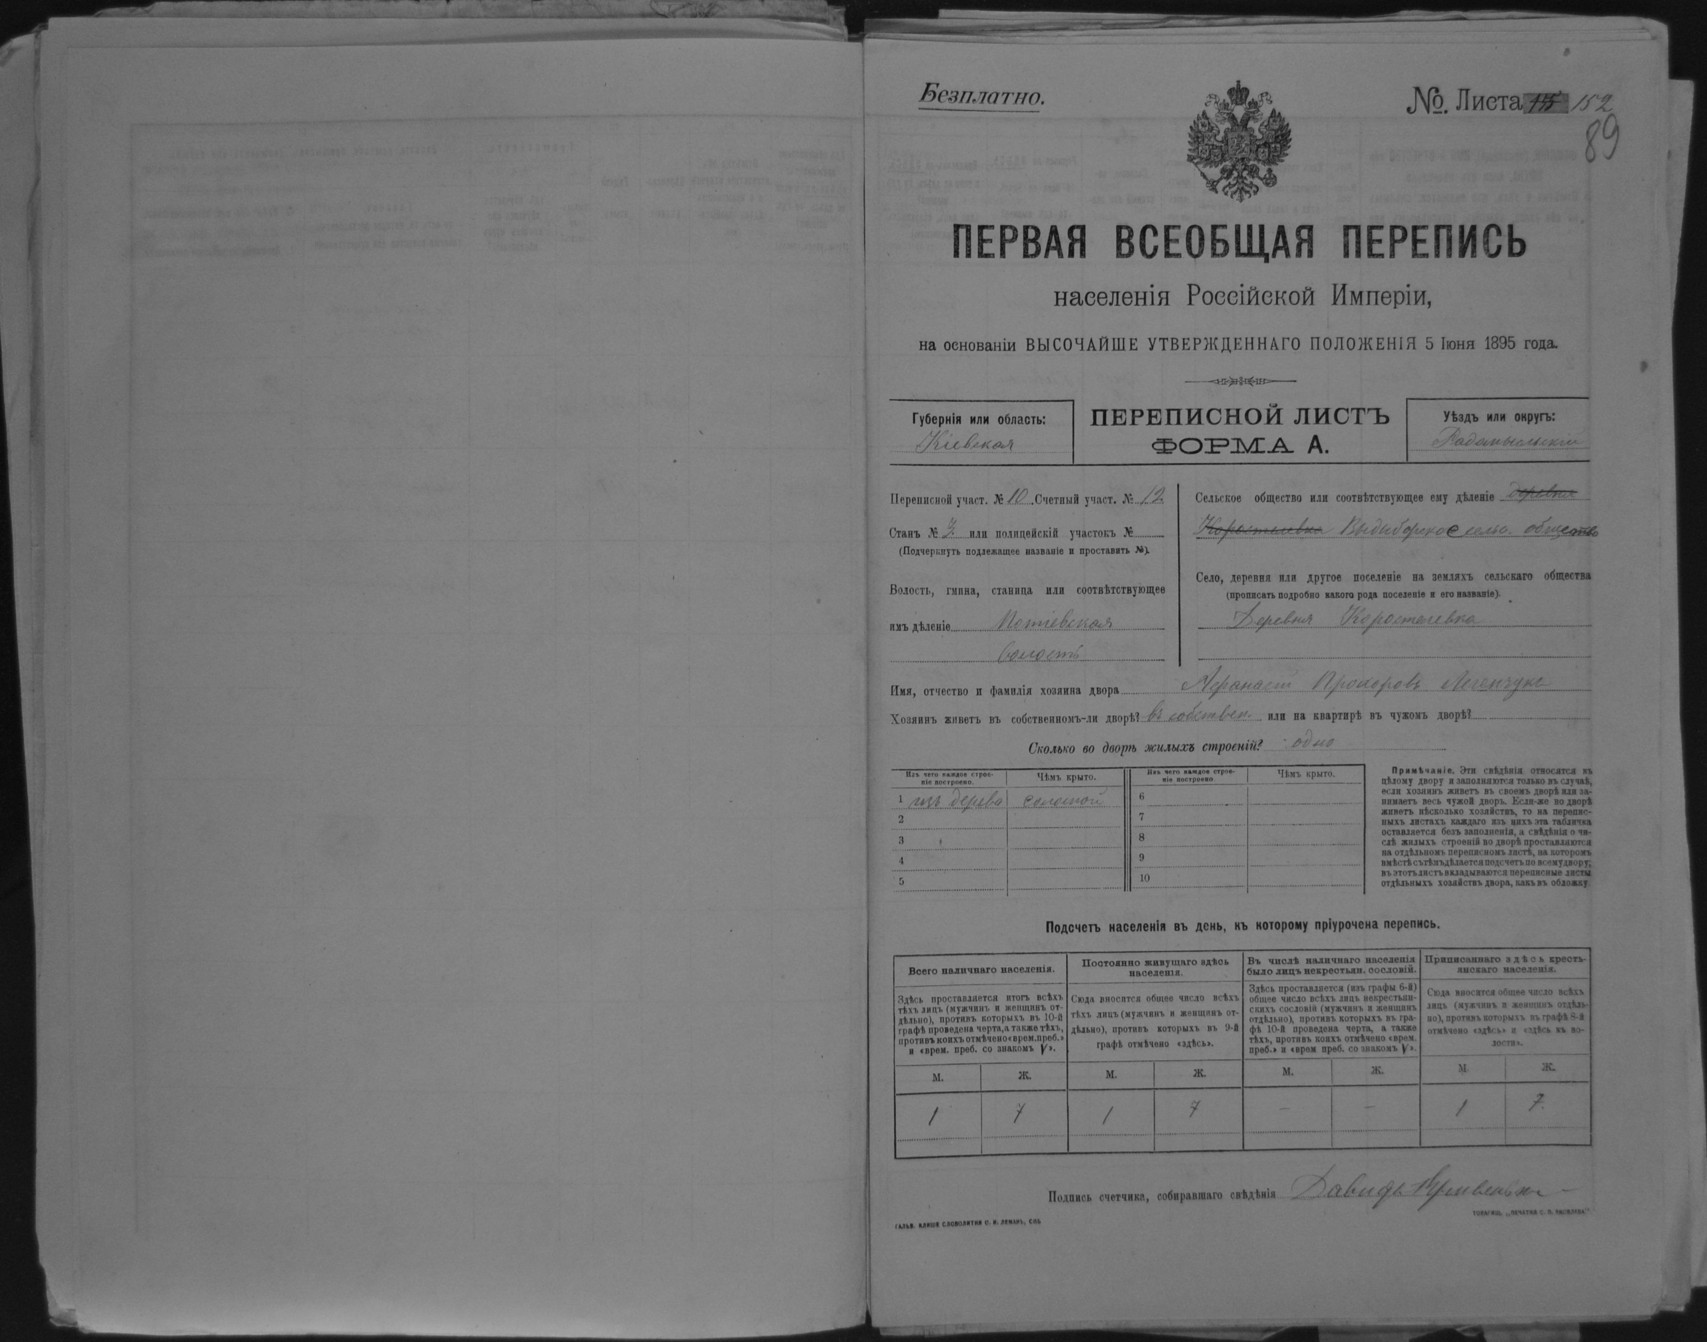 Безплатно.
№. Листа 152
89
ПЕРВАЯ ВСЕОБЩАЯ ПЕРЕПИСЬ
населенія Россійской Имперіи,
на основаніи ВЫСОЧАЙШЕ УТВЕРЖДЕННАГО ПОЛОЖЕНІЯ 5 Іюня 1895 года.
Губернія или область:
Кіевская
ПЕРЕПИСНОЙ ЛИСТЪ
ФОРМА А.
Уѣздъ или округъ:
Радомысльскій
Переписной участ. № 10. Счетный участ. № 12
Станъ № 3 или полицейскій участокъ №
(Подчеркнуть подлежащее названіе и проставить №).
Волость, гмина, станица или соотвѣтствующее
имъ дѣленіе Потіевская
волость
Сельское общество или соотвѣтствующее ему дѣленіе деревня
Коростелевка Выдыборское сельс. общество
Село, деревня или другое поселеніе на земляхъ сельскаго общества
(прописать подробно какого рода поселеніе и его названіе).
Деревня Коростелевка
Имя, отчество и фамилія хозяина двора Афанасій Прохоровъ
Хозяинъ живетъ въ собственномъ-ли дворѣ? въ собствен. или на квартирѣ въ чужомъ дворѣ?
Сколько во дворѣ жилыхъ строеній? одно
Изъ чего каждое строе-
ніе построено.
Чѣмъ крыто.
Изъ чего каждое строе-
ніе построено.
Чѣмъ крыто.
1 изъ дерева соломой
2
3
4
5
6
7
8
9
10
Примѣчаніе. Эти свѣдѣнія относятся къ
цѣлому двору и заполняются только въ случаѣ,
если хозяинъ живетъ въ своемъ дворѣ или за-
нимаетъ весь чужой дворъ. Если-же во дворѣ
живетъ нѣсколько хозяйствъ, то на перепис-
ныхъ листахъ каждаго изъ нихъ эта табличка
оставляется безъ заполненія, а свѣдѣнія о чи-
слѣ жилыхъ строеній во дворѣ проставляются
на отдѣльномъ переписномъ листѣ, на которомъ
вмѣстѣ съ тѣмъ дѣлается подсчетъ по всему двору;
въ этотъ листъ вкладываются переписные листы
отдѣльныхъ хозяйствъ двора, какъ въ обложку.
Подсчетъ населенія въ день, къ которому пріурочена перепись.
Всего наличнаго населенія.
Здѣсь проставляется итогъ всѣхъ
тѣхъ лицъ (мужчинъ и женщинъ от-
дѣльно), противъ которыхъ въ 10-й
графѣ проведена черта, а также тѣхъ,
противъ коихъ отмѣчено «врем. преб.»
и «врем. преб. со знакомъ V».
Постоянно живущаго здѣсь
населенія.
Сюда вносится общее число всѣхъ
тѣхъ лицъ (мужчинъ и женщинъ от-
дѣльно), противъ которыхъ въ 9-й
графѣ отмѣчено «здѣсь».
Въ числѣ наличнаго населенія
было лицъ некрестьян. сословій.
Здѣсь проставляется (изъ графы 6-й)
общее число всѣхъ лицъ некрестьян-
скихъ сословій (мужчинъ и женщинъ
отдѣльно), противъ которыхъ въ гра-
фѣ 10-й проведена черта, а также
тѣхъ, противъ коихъ отмѣчено «врем.
преб.» и «врем преб. со знакомъ V».
Приписаннаго здѣсь кресть-
янскаго населенія.
Сюда вносится общее число всѣхъ
лицъ (мужчинъ и женщинъ отдѣль-
но), противъ которыхъ въ графѣ 8-й
отмѣчено «здѣсь» и «здѣсь въ во-
лости».
М. Ж. М. Ж. М. Ж. М. Ж.
1 7 1 7 – – 1 7.
Подпись счетчика, собиравшаго свѣдѣнія Давидъ